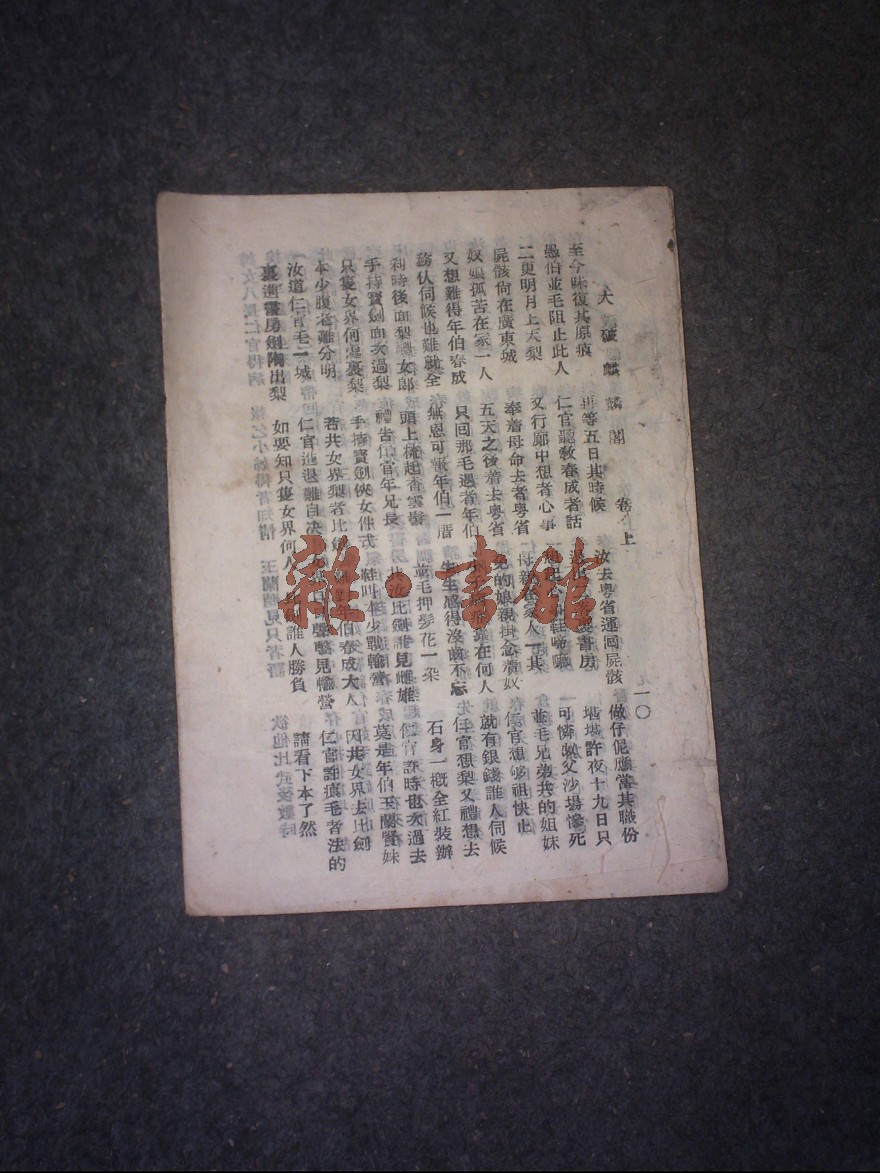 大破麒麟閣 卷上 一〇
至今昧復其原痕 再等五日其時候 汝去粵省運囘屍骸 做仔應當其職份
愚伯並毛阻止此人 仁官聽教春成者話 書房 塔塔許夜十九日只
二更明月上天梨 又行廊中想者心事 可憐父沙場慘死
屍骸向在廣東城 奉着母命去者粵省 家人一其 並毛兄弟共的姐妹
奴娘孤苦在家一人 五天之後着去粵省 娘親掛念着奴 仁官想够祖快止
又想難得年伯春成 只囘那毛遇者年伯 在何人 就有銀錢誰人伺候
務仫伺候也難就全 無恩可報年伯一厝 生生感得沒齒不忘 仁官想梨又禮想去
利時後面梨一女郎 頭上梳起杏雲髻 並毛押髮花一朶 石身一概全紅裝辦
手持寶劍面次過梨 禮告仁官年兄長 共汝比劍誰見雌雄 仁官許時也次過去
只隻女界何處裏梨 手持寶劍俠女 叫本少戰輸營 莫是年伯玉蘭賢妹
本少腹老難分明 若共女界梨者比劍 年伯春成大人 因共女界去比劍
汝道仁官毛一城 仁官進退難自决 見輸營 仁官誰痕毛者法的
裏進書房劍陶出梨 如要知只隻女界何人 比劍誰人勝負 請看下本了然
雜·書館